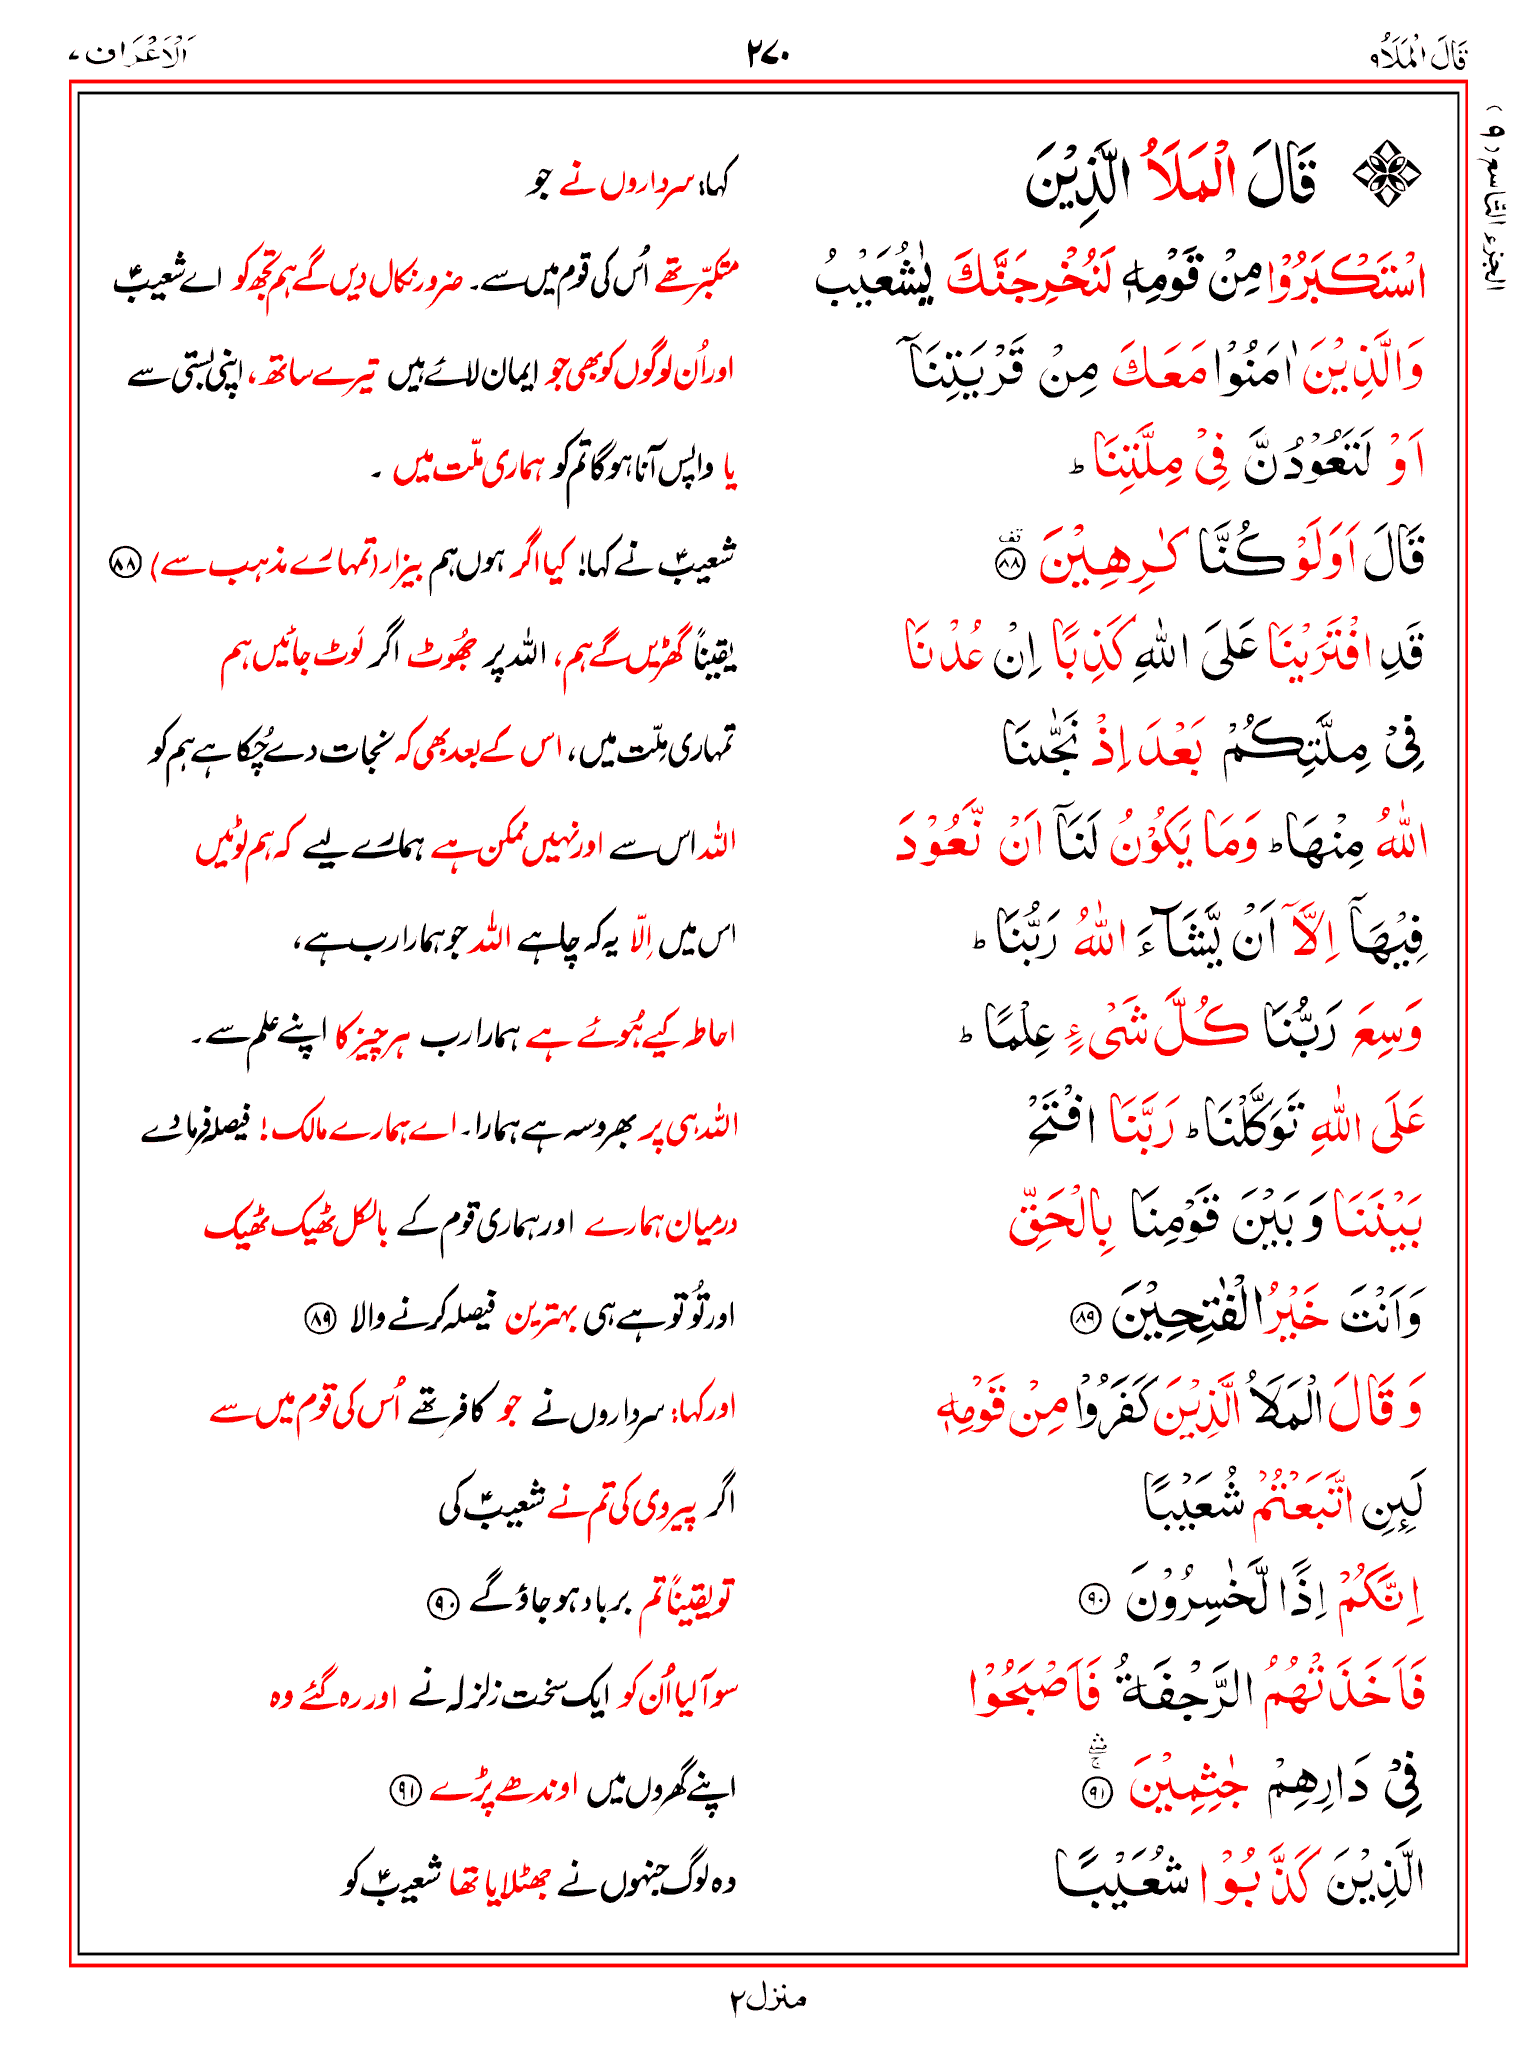 قَالَ الْمَلَاُ ۹
۲۷۰
اَلْاَعْرَاف ۷
الجزء التاسع (۹)
قَالَ الْمَلَاُ الَّذِيْنَ
کہا: سرداروں نے جو
اسْتَكْبَرُوْا مِنْ قَوْمِهٖ لَنُخْرِجَنَّكَ يٰشُعَيْبُ
متکبّر تھے اُس کی قوم میں سے۔ ضرور نکال دیں گے ہم تجھ کو اے شعیبؑ
وَالَّذِيْنَ اٰمَنُوْا مَعَكَ مِنْ قَرْيَتِنَاۤ
اور اُن لوگوں کو بھی جو ایمان لائے ہیں تیرے ساتھ، اپنی بستی سے
اَوْ لَتَعُوْدُنَّ فِيْ مِلَّتِنَا ؕ
یا واپس آنا ہو گا تم کو ہماری ملّت میں ۔
قَالَ اَوَلَوْ كُنَّا كٰرِهِيْنَ ۟ۙ ﴿۸۸﴾
شعیبؑ نے کہا! کیا اگر ہوں ہم بیزار (تمہارے مذہب سے) ﴿۸۸﴾
قَدِ افْتَرَيْنَا عَلَى اللّٰهِ كَذِبًا اِنْ عُدْنَا
یقیناً گھڑیں گے ہم، اللہ پر جھُوٹ اگر لَوٹ جائیں ہم
فِيْ مِلَّتِكُمْ بَعْدَ اِذْ نَجّٰىنَا
تمہاری مِلّت میں، اس کے بعد بھی کہ نجات دے چُکا ہے ہم کو
اللّٰهُ مِنْهَا ؕ وَمَا يَكُوْنُ لَنَاۤ اَنْ نَّعُوْدَ
اللہ اس سے اور نہیں ممکن ہے ہمارے لیے کہ ہم لوٹیں
فِيْهَاۤ اِلَّاۤ اَنْ يَّشَآءَ اللّٰهُ رَبُّنَا ؕ
اس میں اِلّا یہ کہ چاہے اللہ جو ہمارا رب ہے،
وَسِعَ رَبُّنَا كُلَّ شَيْءٍ عِلْمًا ؕ
احاطہ کیے ہُوئے ہے ہمارا رب ہر چیز کا اپنے علم سے۔
عَلَى اللّٰهِ تَوَكَّلْنَا ؕ رَبَّنَا افْتَحْ
اللہ ہی پر بھروسہ ہے ہمارا۔ اے ہمارے مالک! فیصلہ فرما دے
بَيْنَنَا وَبَيْنَ قَوْمِنَا بِالْحَقِّ
درمیان ہمارے اور ہماری قوم کے بالکل ٹھیک ٹھیک
وَاَنْتَ خَيْرُ الْفٰتِحِيْنَ ﴿۸۹﴾
اور تُو تو ہے ہی بہترین فیصلہ کرنے والا ﴿۸۹﴾
وَقَالَ الْمَلَاُ الَّذِيْنَ كَفَرُوْا مِنْ قَوْمِهٖ
اور کہا: سرداروں نے جو کافر تھے اُس کی قوم میں سے
لَىِٕنِ اتَّبَعْتُمْ شُعَيْبًا
اگر پیروی کی تم نے شعیبؑ کی
اِنَّكُمْ اِذًا لَّخٰسِرُوْنَ ﴿۹۰﴾
تو یقیناً تم برباد ہو جاؤ گے ﴿۹۰﴾
فَاَخَذَتْهُمُ الرَّجْفَةُ فَاَصْبَحُوْا
سو آ لیا اُن کو ایک سخت زلزلہ نے اور رہ گئے وہ
فِيْ دَارِهِمْ جٰثِمِيْنَ ﴿۹۱﴾
اپنے گھروں میں اوندھے پڑے ﴿۹۱﴾
الَّذِيْنَ كَذَّبُوْا شُعَيْبًا
وہ لوگ جنہوں نے جھٹلایا تھا شعیبؑ کو
منزل ۲